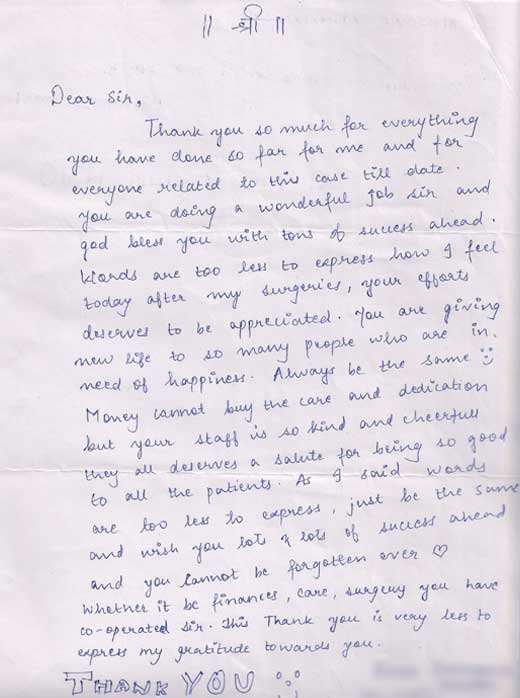 ॥ श्री ॥
Dear Sir,
Thank you so much for everything
you have done so far for me and for
everyone related to this case till date.
You are doing a wonderful job sir and
god bless you with tons of success ahead.
Words are too less to express how I feel
today after my surgeries, your efforts
deserves to be appreciated. You are giving
new life to so many people who are in
need of happiness. Always be the same
Money cannot buy the care and dedication
but your staff is so kind and cheerfull
they all deserves a salute for being so good
to all the patients. As I said words
are too less to express, just be the same
and wish you lots & lots of success ahead
and you cannot be forgotten ever ♡
Whether it be finances, care, surgery you have
co-operated sir. This Thank you is very less to
express my gratitude towards you.
THANK YOU